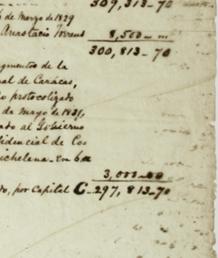 309,313-70
de Marzo de 1829
Anastacio
8,500 — —
300,813-70
de la
de Carácas,
protocolizado
de mayo de 1831,
al Gobierno
dencial de Cos
ichelena. En 6
3,000-00
por Capital C 297,813-70